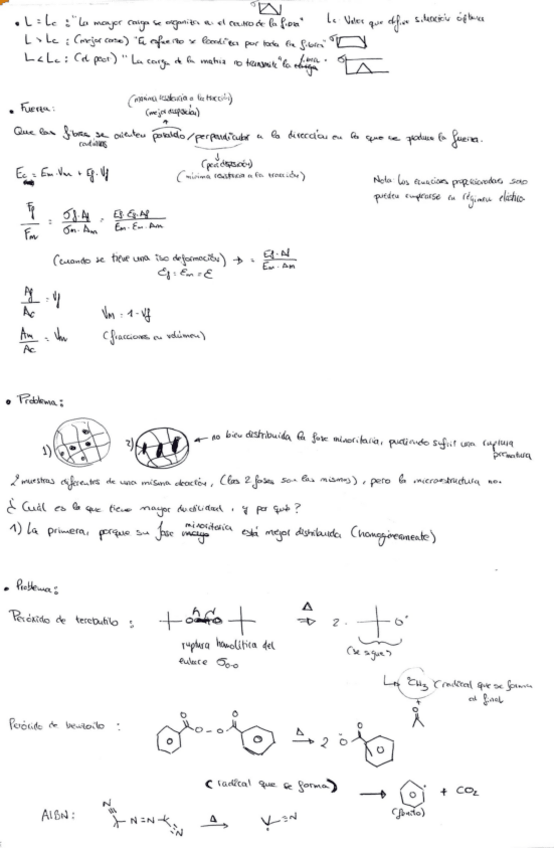 • L = Lc : "La mayor carga se organiza en el centro de la fibra"   Lc Valor que define situación óptima
L > Lc : (mejor caso) "El esfuerzo se localiza por toda la fibra"
L < Lc : (el peor) "La carga de la matriz no transmite" la fibra.
• Fuerza:
(máxima resistencia a la tracción)
(mejor disposición)
Que las fibras se orienten paralelo/perpendicular a la dirección en la que se produce la fuerza.
(peor disposición)
(mínima resistencia a la tracción)
Ec = Em·Vm + Ef·Vf
Nota: Las ecuaciones proporcionadas solo
pueden emplearse en régimen elástico
Ff/Fm = σf·Af/σm·Am = Ef·Ef·Af/Em·Em·Am
(cuando se tiene una iso deformación) → = Ef·Af/Em·Am
Ef = Em = E
Af/Ac = Vf
Vm = 1 - Vf
Am/Ac = Vm   (fracciones en volúmen)
• Problema:
1)   2)   ← no bien distribuida la fase minoritaria, pudiendo sufrir una ruptura
prematura
2 muestras diferentes de una misma aleación, (las 2 fases son las mismas), pero la microestructura no.
¿Cuál es la que tiene mayor ductilidad, y por qué?
1) La primera, porque su fase minoritaria está mejor distribuida (homogéneamente)
• Problema:
Peróxido de tercbutilo :   Δ   2·   O•
ruptura homolítica del
enlace σO-O
(se sigue)
CH3 (radical que se forma
al final
Peróxido de benzoilo :   O   O   O-O   Δ   2   O
(radical que se forma) → + CO2
(fenilo)
AIBN:   N   N=N   N   Δ   N